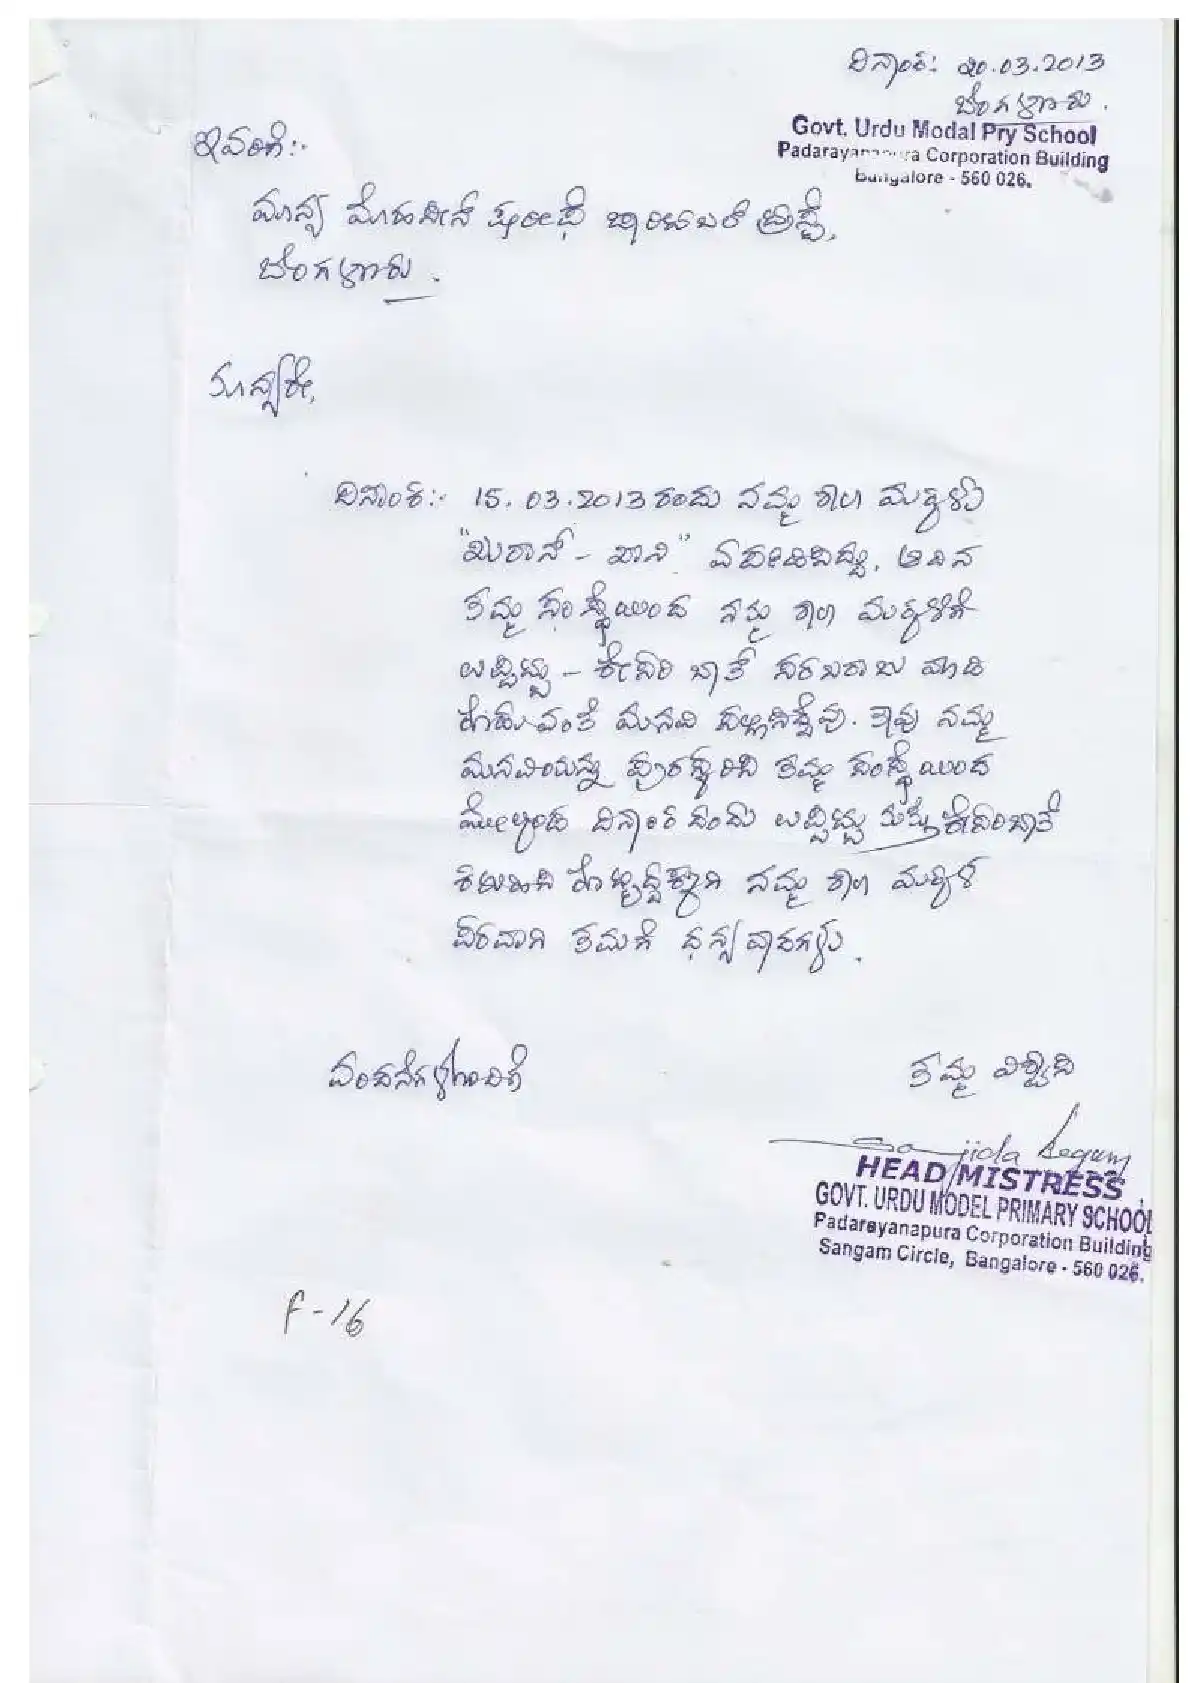 ದಿನಾಂಕ: 20.03.2013
ಬೆಂಗಳೂರು.
Govt. Urdu Modal Pry School
Padarayanapura Corporation Building
Bangalore - 560 026.
ಇವರಿಗೆ:-
ಮಾನ್ಯ ಮೊಹದೀನ್ ಷರೀಫ್ ಚಾರಿಟಬಲ್ ಟ್ರಸ್ಟ್,
ಬೆಂಗಳೂರು.
ಮಾನ್ಯರೇ,
ದಿನಾಂಕ:- 15.03.2013 ರಂದು ನಮ್ಮ ಶಾಲಾ ಮಕ್ಕಳು
"ಖುರಾನ್ - ಖಾನಿ" ಏರ್ಪಡಿಸಿದ್ದು, ಆ ದಿನ
ತಮ್ಮ ಸಂಸ್ಥೆಯಿಂದ ನಮ್ಮ ಶಾಲಾ ಮಕ್ಕಳಿಗೆ
ಉಪ್ಪಿಟ್ಟು - ಕೇಸರಿ ಬಾತ್ ಸರಬರಾಜು ಮಾಡಿ
ಕೊಡುವಂತೆ ಮನವಿ ಸಲ್ಲಿಸಿದ್ದೆವು. ತಾವು ನಮ್ಮ
ಮನವಿಯನ್ನು ಪುರಸ್ಕರಿಸಿ ತಮ್ಮ ಸಂಸ್ಥೆಯಿಂದ
ಮೇಲ್ಕಂಡ ದಿನಾಂಕದಂದು ಉಪ್ಪಿಟ್ಟು ಮತ್ತು ಕೇಸರಿಬಾತ್
ಕಳುಹಿಸಿ ಕೊಟ್ಟಿದ್ದಕ್ಕಾಗಿ ನಮ್ಮ ಶಾಲಾ ಮಕ್ಕಳ
ಪರವಾಗಿ ತಮಗೆ ಧನ್ಯವಾದಗಳು.
ವಂದನೆಗಳೊಂದಿಗೆ
ತಮ್ಮ ವಿಶ್ವಾಸಿ
Sanjida Begum
HEAD MISTRESS
GOVT. URDU MODEL PRIMARY SCHOOL
Padarayanapura Corporation Building
Sangam Circle, Bangalore - 560 026.
F-16